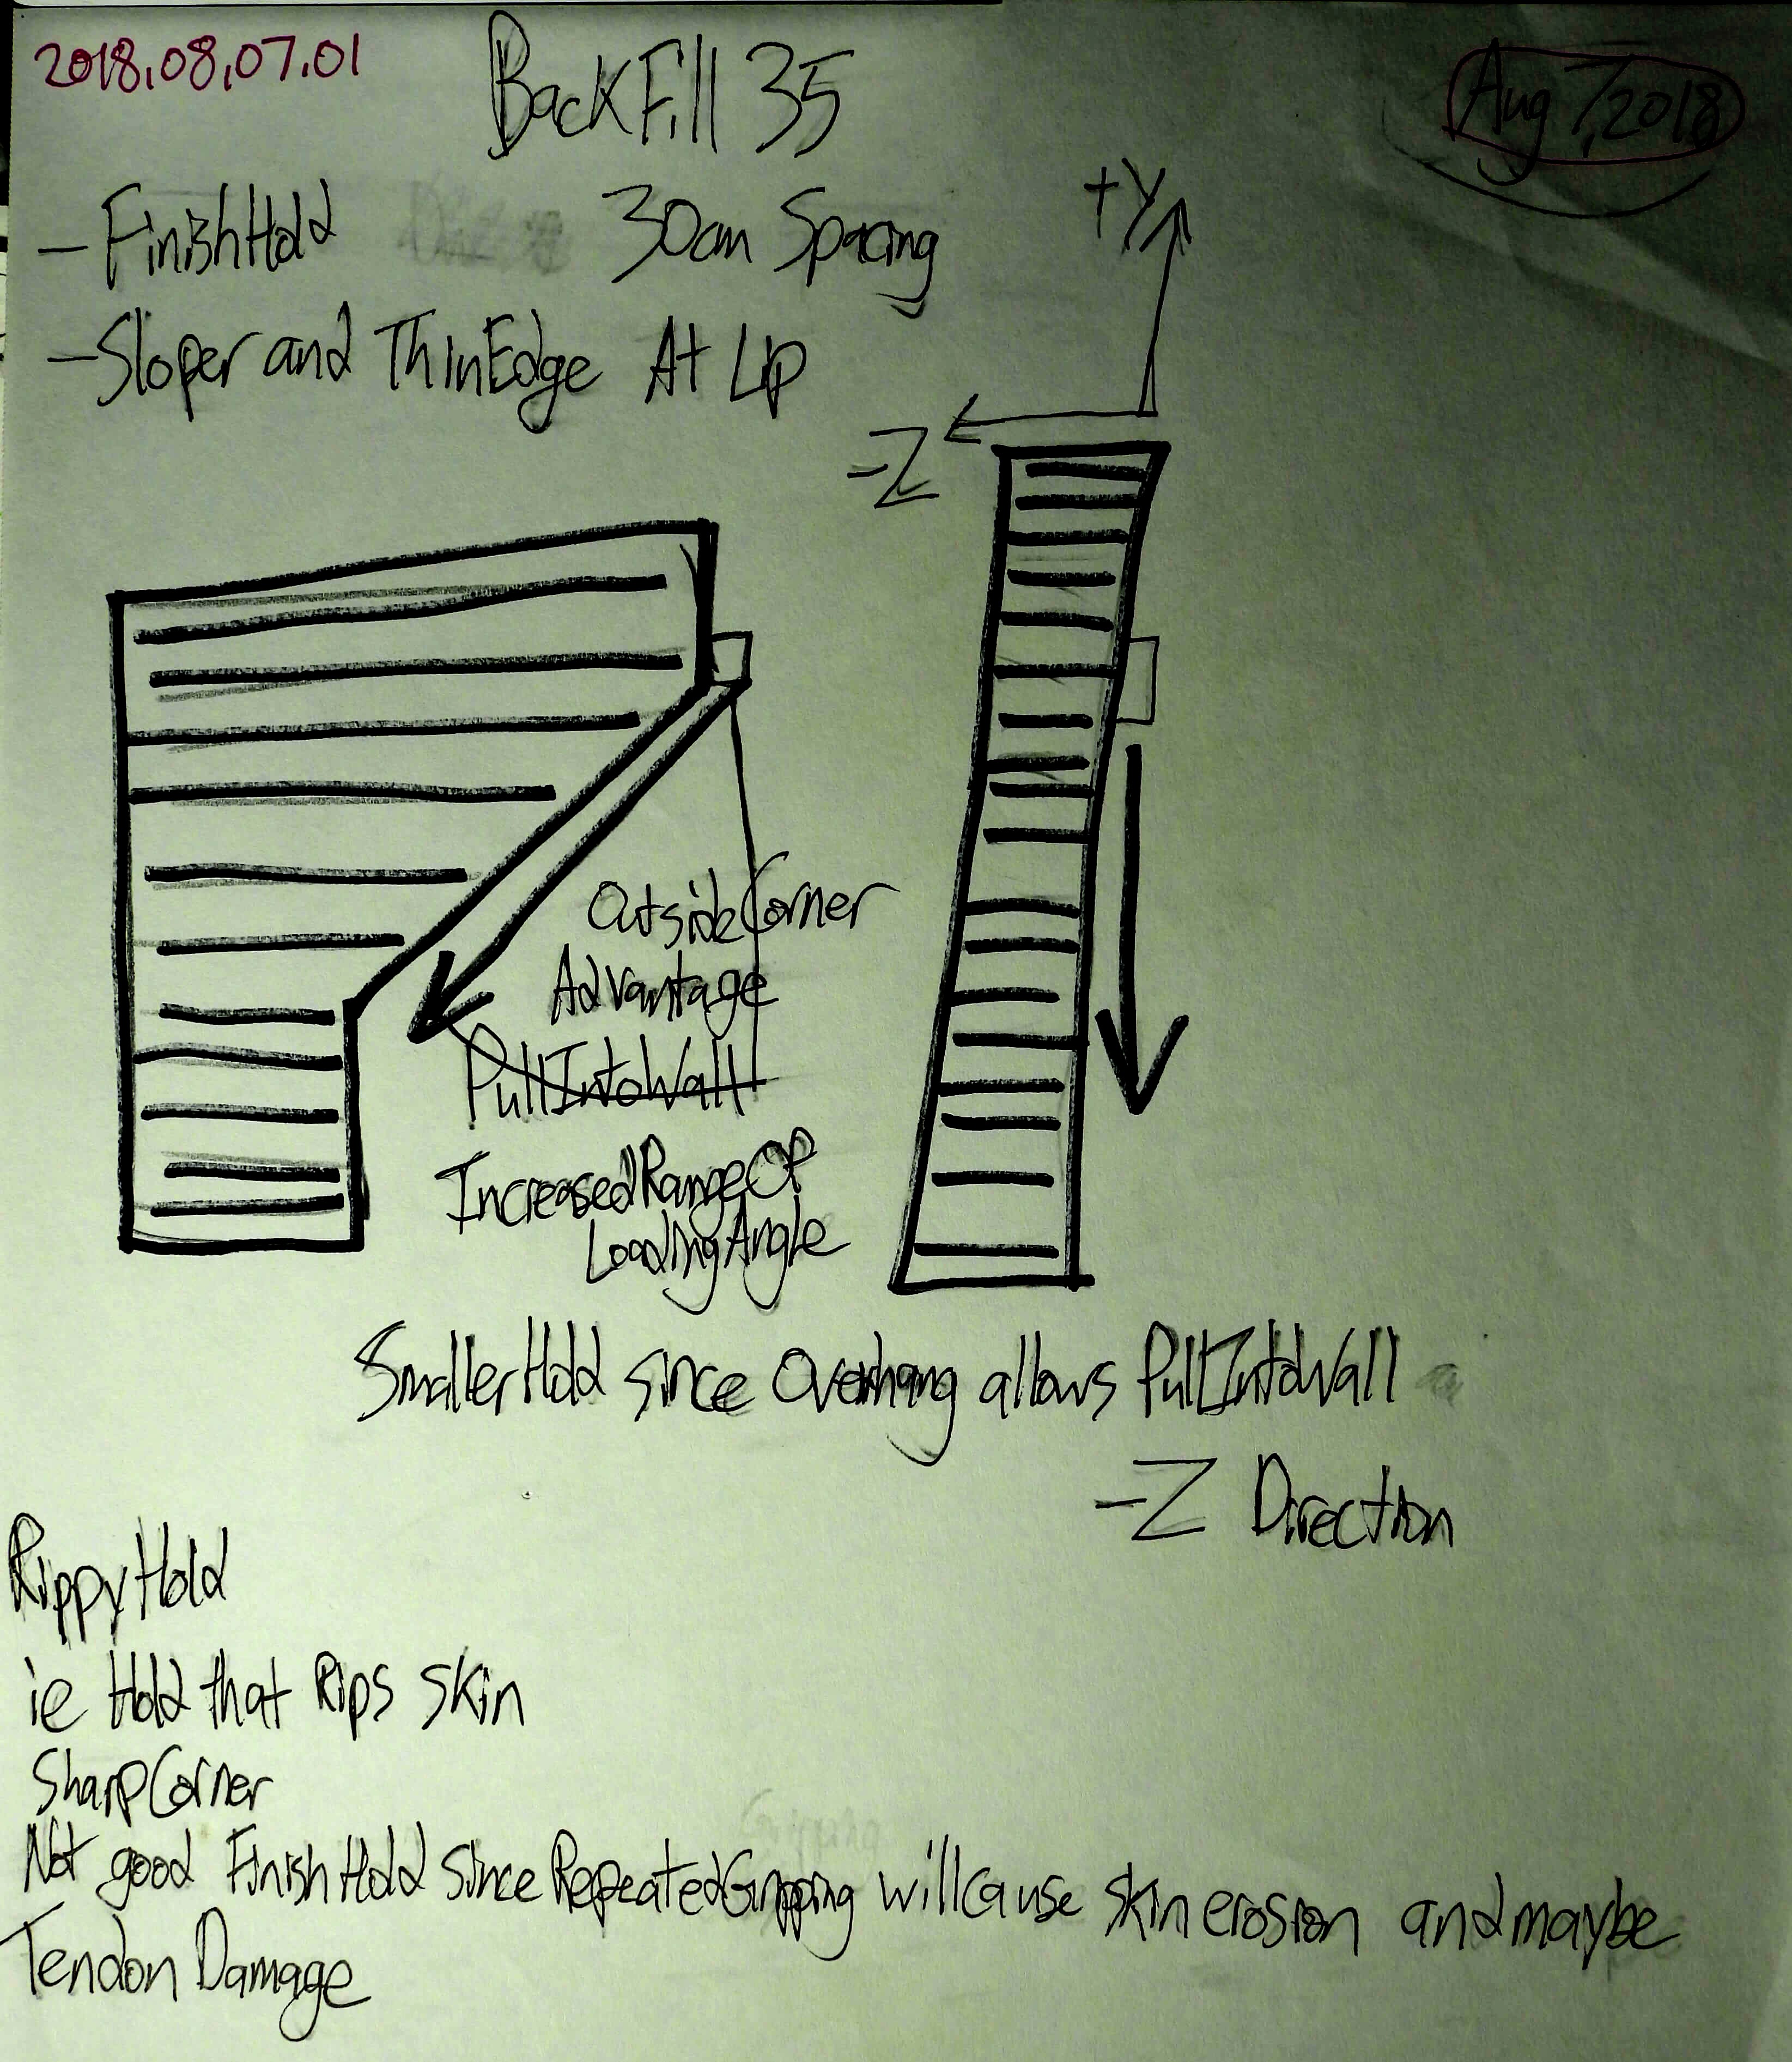 2018.08.07.01
BackFill 35
Aug 7, 2018
-FinishHold
30cm Spacing
+Y
-Sloper and ThinEdge At Lip
-Z
OutsideCorner
Advantage
PullIntoWall
IncreasedRangeOf
LoadingAngle
SmallerHold since Overhang allows PullIntoWall
-Z Direction
RippyHold
ie Hold that Rips Skin
SharpCorner
Gripping
Not good FinishHold since RepeatedGripping will cause skin erosion and maybe
Tendon Damage